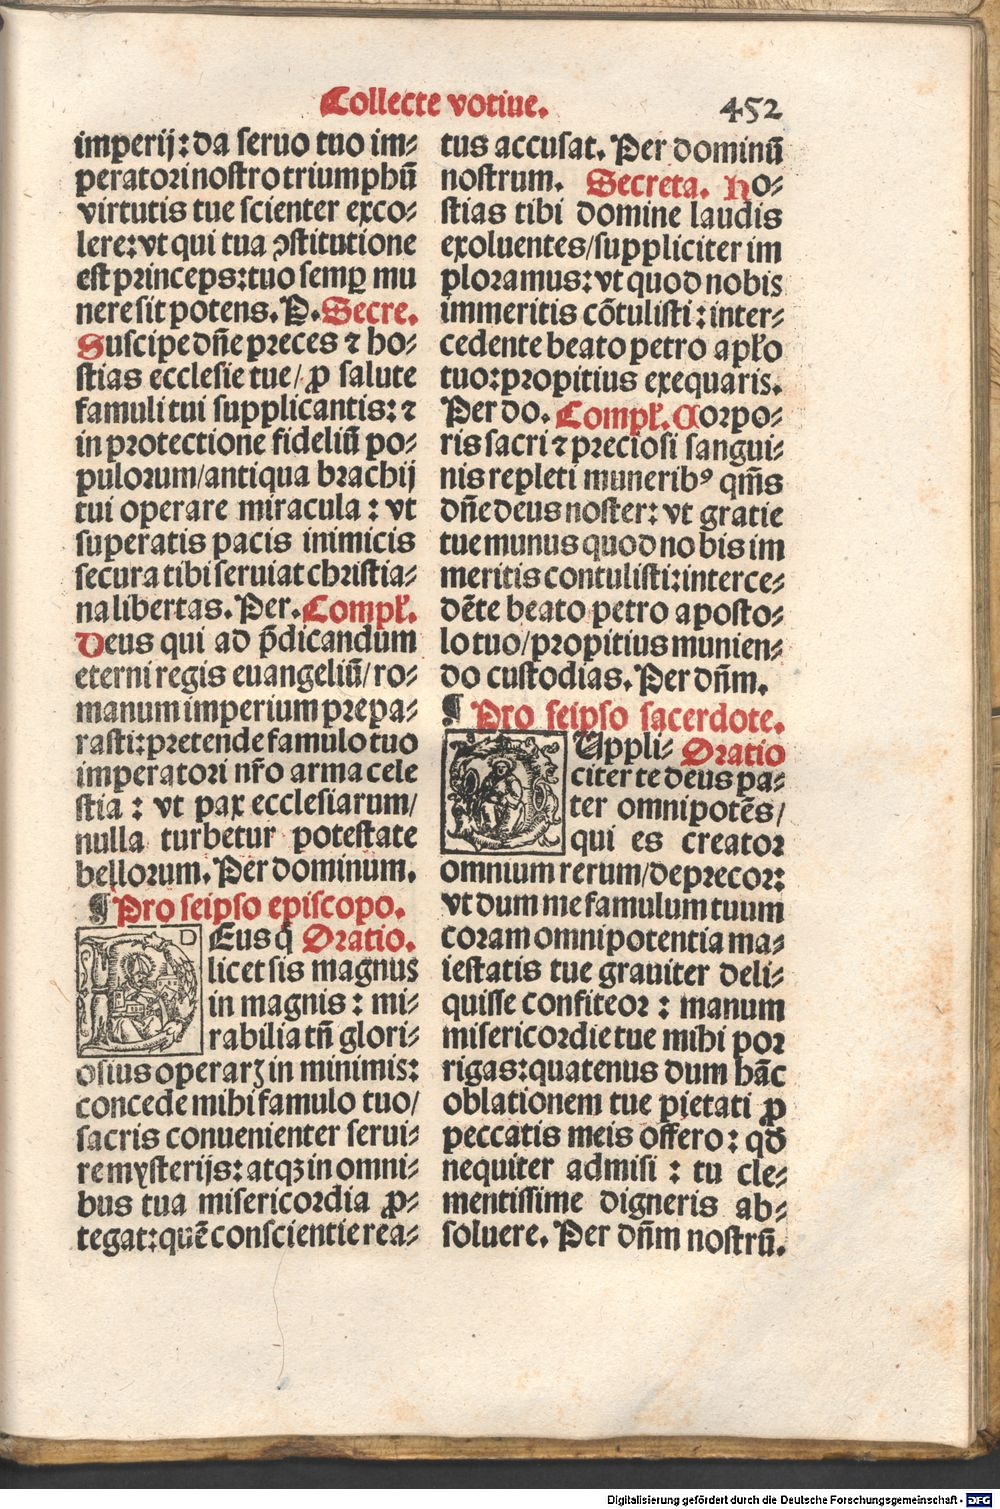 Collecte votiue.
452
imperij: da seruo tuo im⸗
peratori nostro triumphū
virtutis tue scienter exco⸗
lere: vt qui tua ꝯstitutione
est princeps: tuo semꝑ mu
nere sit potens. P. Secre.
Suscipe dn̄e preces ⁊ ho⸗
stias ecclesie tue/ ꝓ salute
famuli tui supplicantis: ⁊
in protectione fideliū po⸗
pulorum/antiqua brachij
tui operare miracula: vt
superatis pacis inimicis
secura tibi seruiat christia⸗
na libertas. Per. Compl̛.
Deus qui ad p̄dicandum
eterni regis euangeliū/ ro⸗
manum imperium prepa⸗
rasti: pretende famulo tuo
imperatori nr̄o arma cele
stia: vt pax ecclesiarum/
nulla turbetur potestate
bellorum. Per dominum.
¶ Pro seipso episcopo.
D Eus q̄ Oratio.
licet sis magnus
in magnis: mi⸗
rabilia tn̄ glori⸗
osius operarꝫ in minimis:
concede mihi famulo tuo/
sacris conuenienter serui⸗
re mysterijs: atqꝫ in omni⸗
bus tua misericordia ꝓ⸗
tegat: quē conscientie rea⸗
tus accusat. Per dominū
nostrum. Secreta. Ho⸗
stias tibi domine laudis
exoluentes/suppliciter im
ploramus: vt quod nobis
immeritis cōtulisti: inter⸗
cedente beato petro apl̛o
tuo: propitius exequaris.
Per do. Compl̛. Corpo⸗
ris sacri ⁊ preciosi sangui⸗
nis repleti muneribꝰ qm̄s
dn̄e deus noster: vt gratie
tue munus quod nobis im
meritis contulisti: interce⸗
dēte beato petro aposto⸗
lo tuo/propitius munien⸗
do custodias. Per dn̄m.
¶ Pro seipso sacerdote.
S Uppli⸗ Oratio
citer te deus pa⸗
ter omnipotēs/
qui es creator
omnium rerum/deprecor:
vt dum me famulum tuum
coram omnipotentia ma⸗
iestatis tue grauiter deli⸗
quisse confiteor: manum
misericordie tue mihi por
rigas: quatenus dum hāc
oblationem tue pietati ꝓ
peccatis meis offero: qd̄
nequiter admisi: tu cle⸗
mentissime digneris ab⸗
soluere. Per dn̄m nostrū.
Digitalisierung gefördert durch die Deutsche Forschungsgemeinschaft - DFG